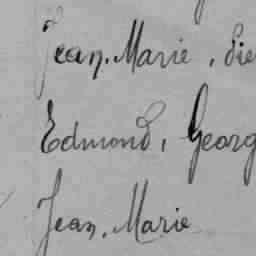 Jean, Marie, die
Edmond, Georg
Jean, Marie